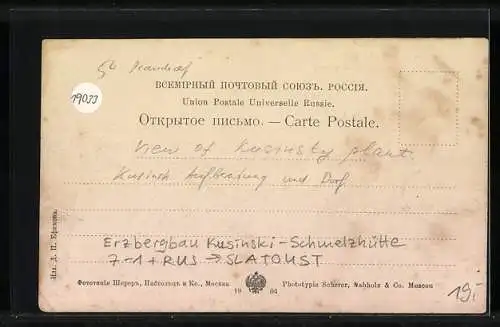 19033
ВСЕМІРНЫЙ ПОЧТОВЫЙ СОЮЗЪ. РОССІЯ.
Union Postale Universelle Russie.
Открытое письмо. — Carte Postale.
View of Kusinsky plant
Kusinsk Aufbereitung und Dorf
Erzbergbau Kusinski-Schmelzhütte
7-1 + RUS → SLATOUST
19,-
Фототипія Шереръ, Набгольцъ и Ко., Москва
19 04
Phototypie Scherer, Nabholz & Co. Moscou
Изд. Д. П. Ефимова.